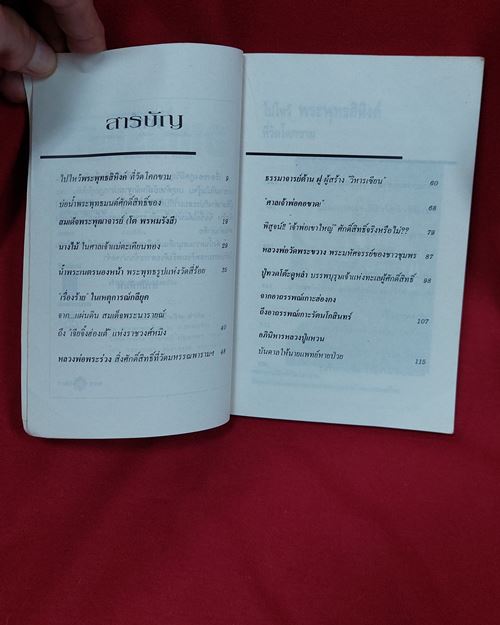 สารบัญ
ไปไหว้พระพุทธสิหิงค์ ที่วัดโคกขาม 9
บ่อน้ำพระพุทธมนต์ศักดิ์สิทธิ์ของ
สมเด็จพระพุฒาจารย์ (โต พรหมรังสี) 19
นางไม้ ในศาลเจ้าแม่ตะเคียนทอง 29
น้ำพระเนตรนองหน้า พระพุทธรูปแห่งวัดสี่ร้อย 35
"เรื่องร้าย" ในเหตุการณ์กลียุค
จาก...แผ่นดิน สมเด็จพระนารายณ์
ถึง "เจียจิ้งฮ่องเต้" แห่งราชวงศ์หมิง 40
หลวงพ่อพระร่วง สิ่งศักดิ์สิทธิ์ที่วัดมหรรณพารามฯ 48
ธรรมาจารย์ต้าน ฝู ผู้สร้าง "วิหารเซียน" 60
"ศาลเจ้าพ่อคอขาด" 68
พิสูจน์!! "เจ้าพ่อเขาใหญ่" ศักดิ์สิทธิ์จริงหรือไม่?? 79
หลวงพ่อวัดพระขวาง พระมหัศจรรย์ของชาวชุมพร 87
ปู่ทวดโต๊ะดูหลำ บรรพบุรุษเจ้าแห่งทะเลผู้ศักดิ์สิทธิ์ 98
จากอาถรรพณ์เกาะฮ่องกง
ถึงอาถรรพณ์เกาะรัตนโกสินทร์ 107
อภินิหารหลวงปู่แหวน
บันดาลให้นายแพทย์หายป่วย 115